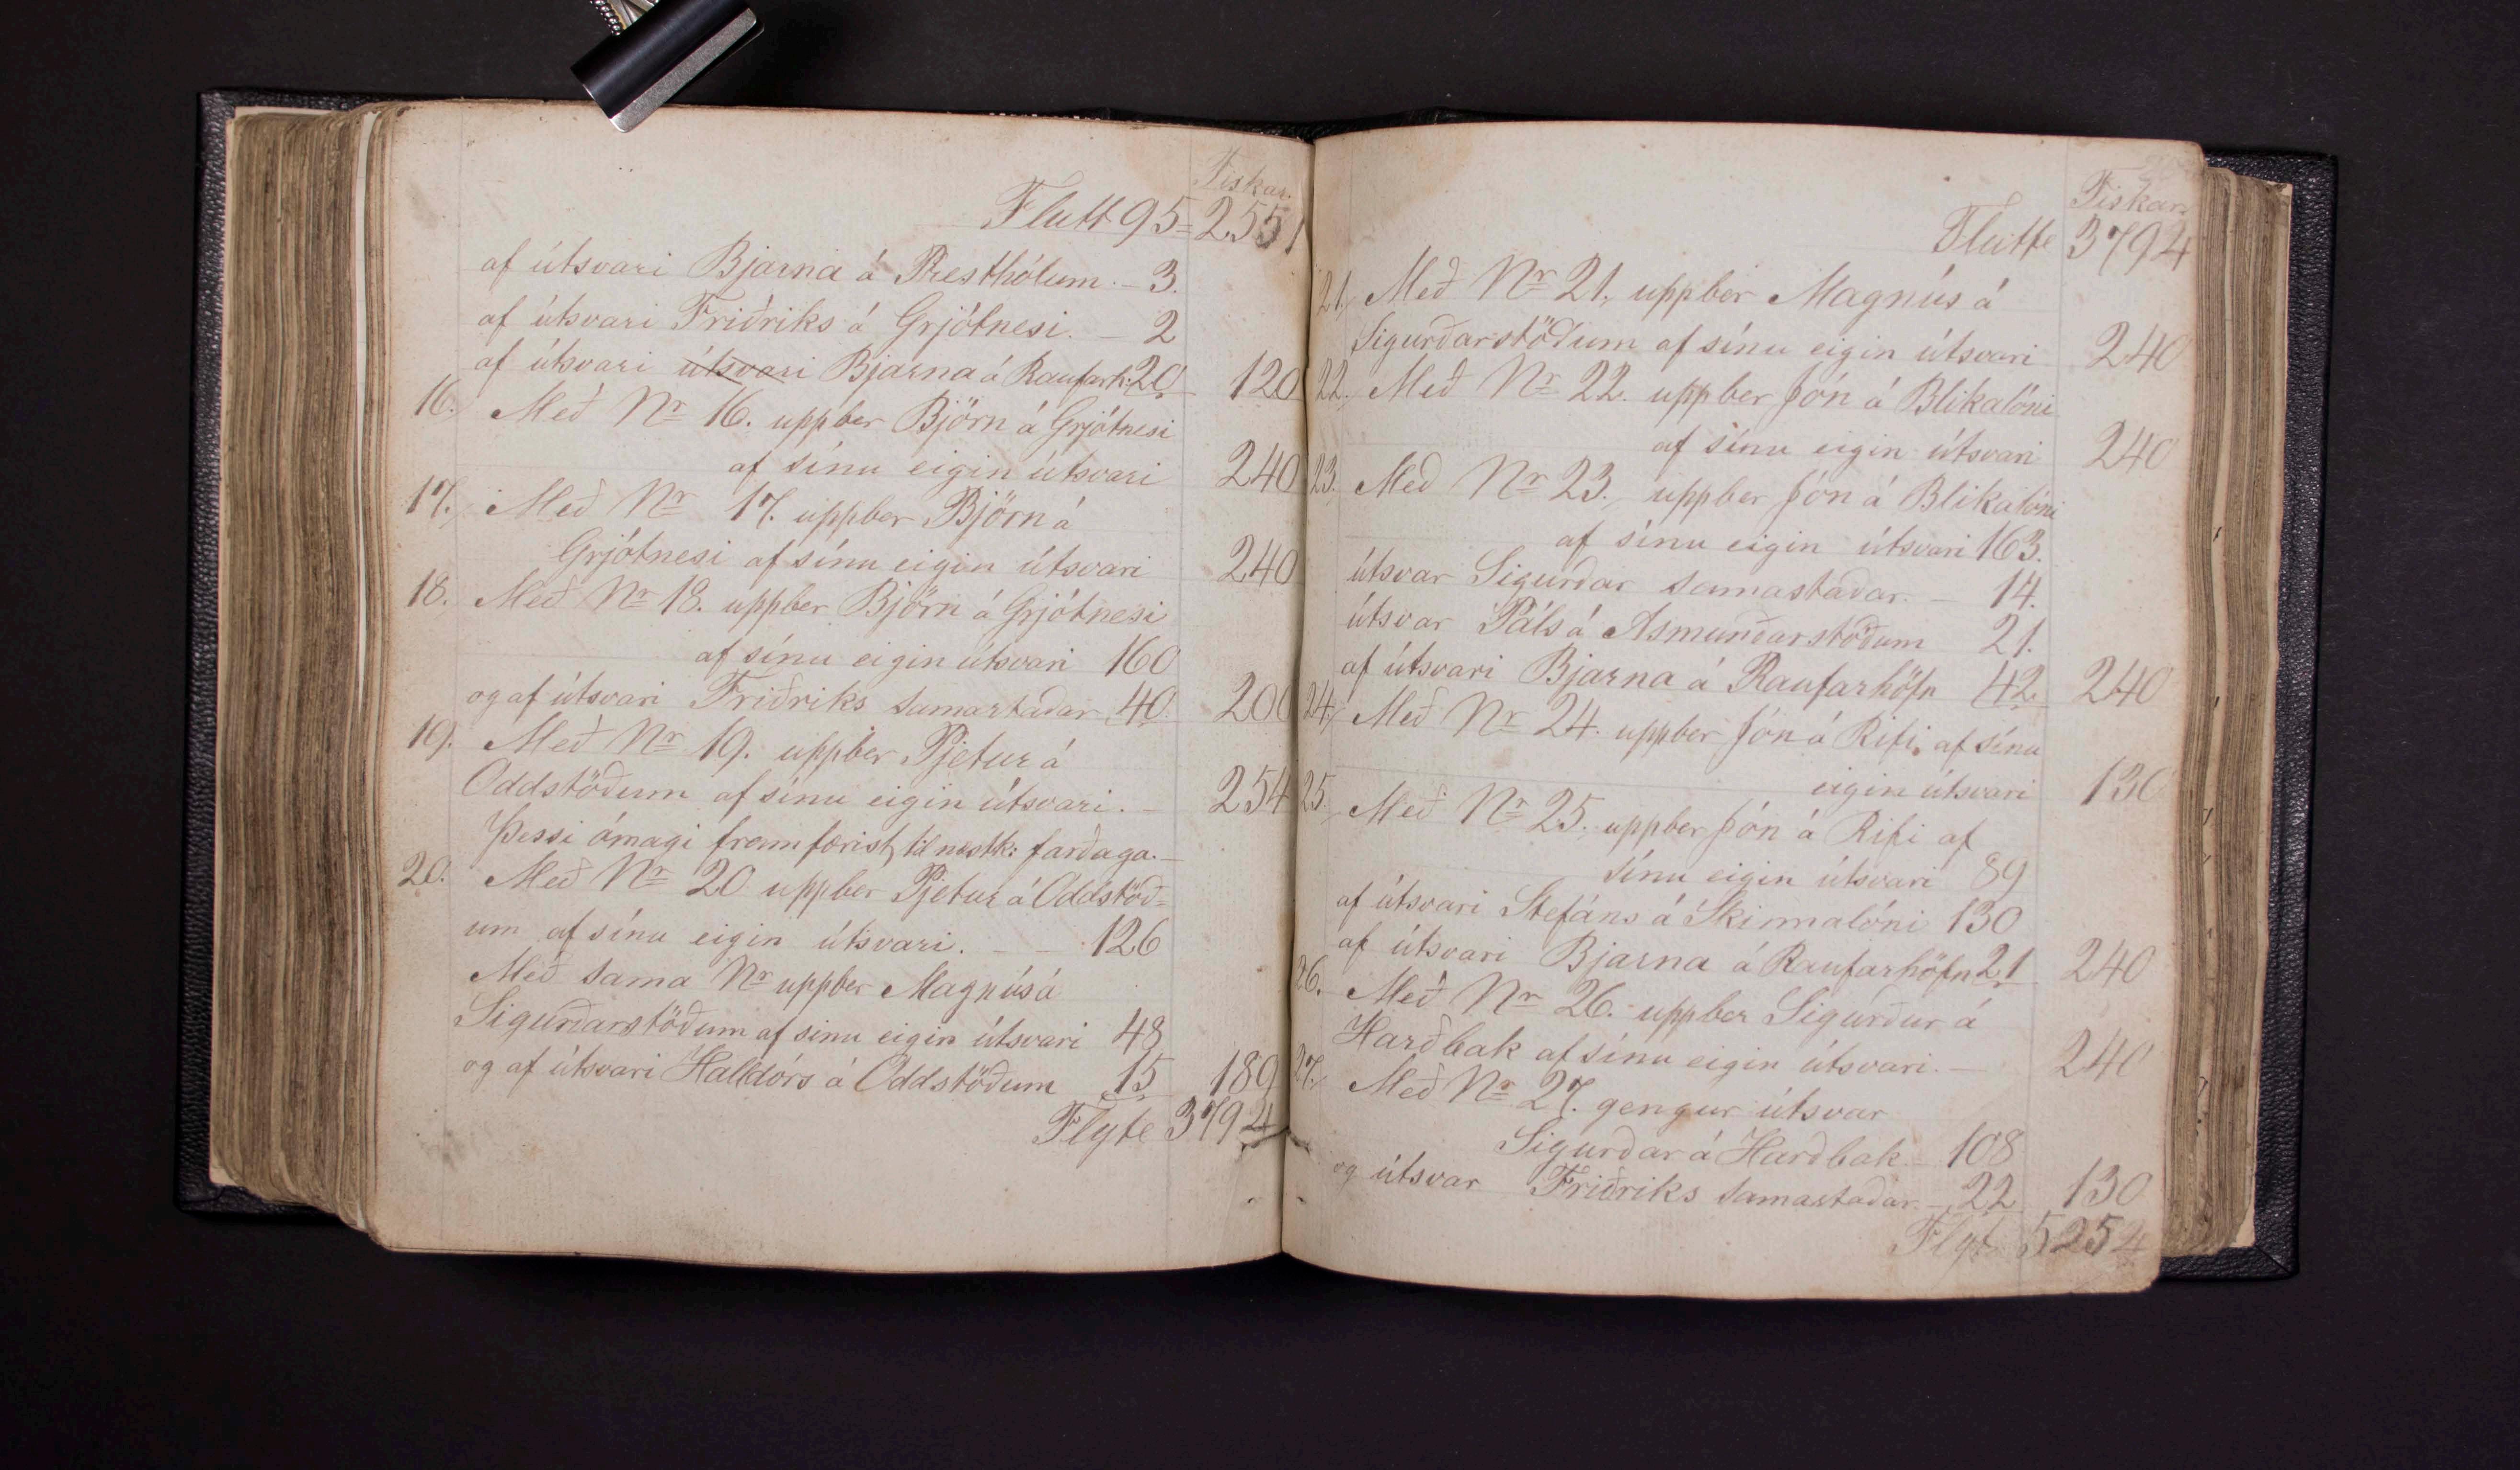 Fiskar.
Flutt 95 = 2551
af útsvari Bjarna á Presthólum. – 3.
af útsvari Friðriks á Grjótnesi. – 2
af útsvari útsvari Bjarna á Raufarh: 20 120
16. Með Nr 16. uppber Björn á Grjótnesi
af sínu eigin útsvari 240
17. Með Nr 17. uppber Björn á
Grjótnesi af sínu eigin útsvari 240
18. Með Nr 18. uppber Björn á Grjótnesi
af sínu eigin útsvari 160
og af útsvari Friðriks samastaðar 40. 200
19. Með Nr 19. uppber Pjetur á
Oddstöðum af sínu eigin útsvari. – 254
Þessi ómagi framfærist til næstk: fardaga. –
20. Með Nr 20 uppber Pjetur á Oddstöð=
um af sínu eigin útsvari. – – 126
Með sama Nr uppber Magnús á
Sigurðarstöðum af sinu eigin útsvari 48
og af útsvari Halldórs á Oddstöðum 15 189
Flyte 3794
Fiskar
Flutte 3794
21. Með Nr 21. uppber Magnús á
Sigurðarstöðum af sínu eigin útsvari 240
22. Með Nr 22. uppber Jón á Blikalóni
af sínu eigin útsvari 240
23. Með Nr 23. uppber Jón á Blikalóni
af sínu eigin útsvari 163.
útsvar Sigurðar samastaðar. – 14.
útsvar Páls á Asmundarstöðum 21.
af útsvari Bjarna á Raufarhöfn 42 240
24. Með Nr 24. uppber Jón á Rifi, af sínu
eigin útsvari 130
25. Með Nr 25. uppber Jón á Rifi af
sínu eigin útsvari 89
af útsvari Stefáns á Skinnalóni 130
af útsvari Bjarna á Raufarhöfn 21 240
26. Með Nr 26. uppber Sigurður á
Harðbak af sínu eigin útsvari. – 240
27. Með Nr 27. gengur útsvar
Sigurðar á Harðbak. – 108
og útsvar Friðriks samastaðar. – 22 130
Flyt 5254